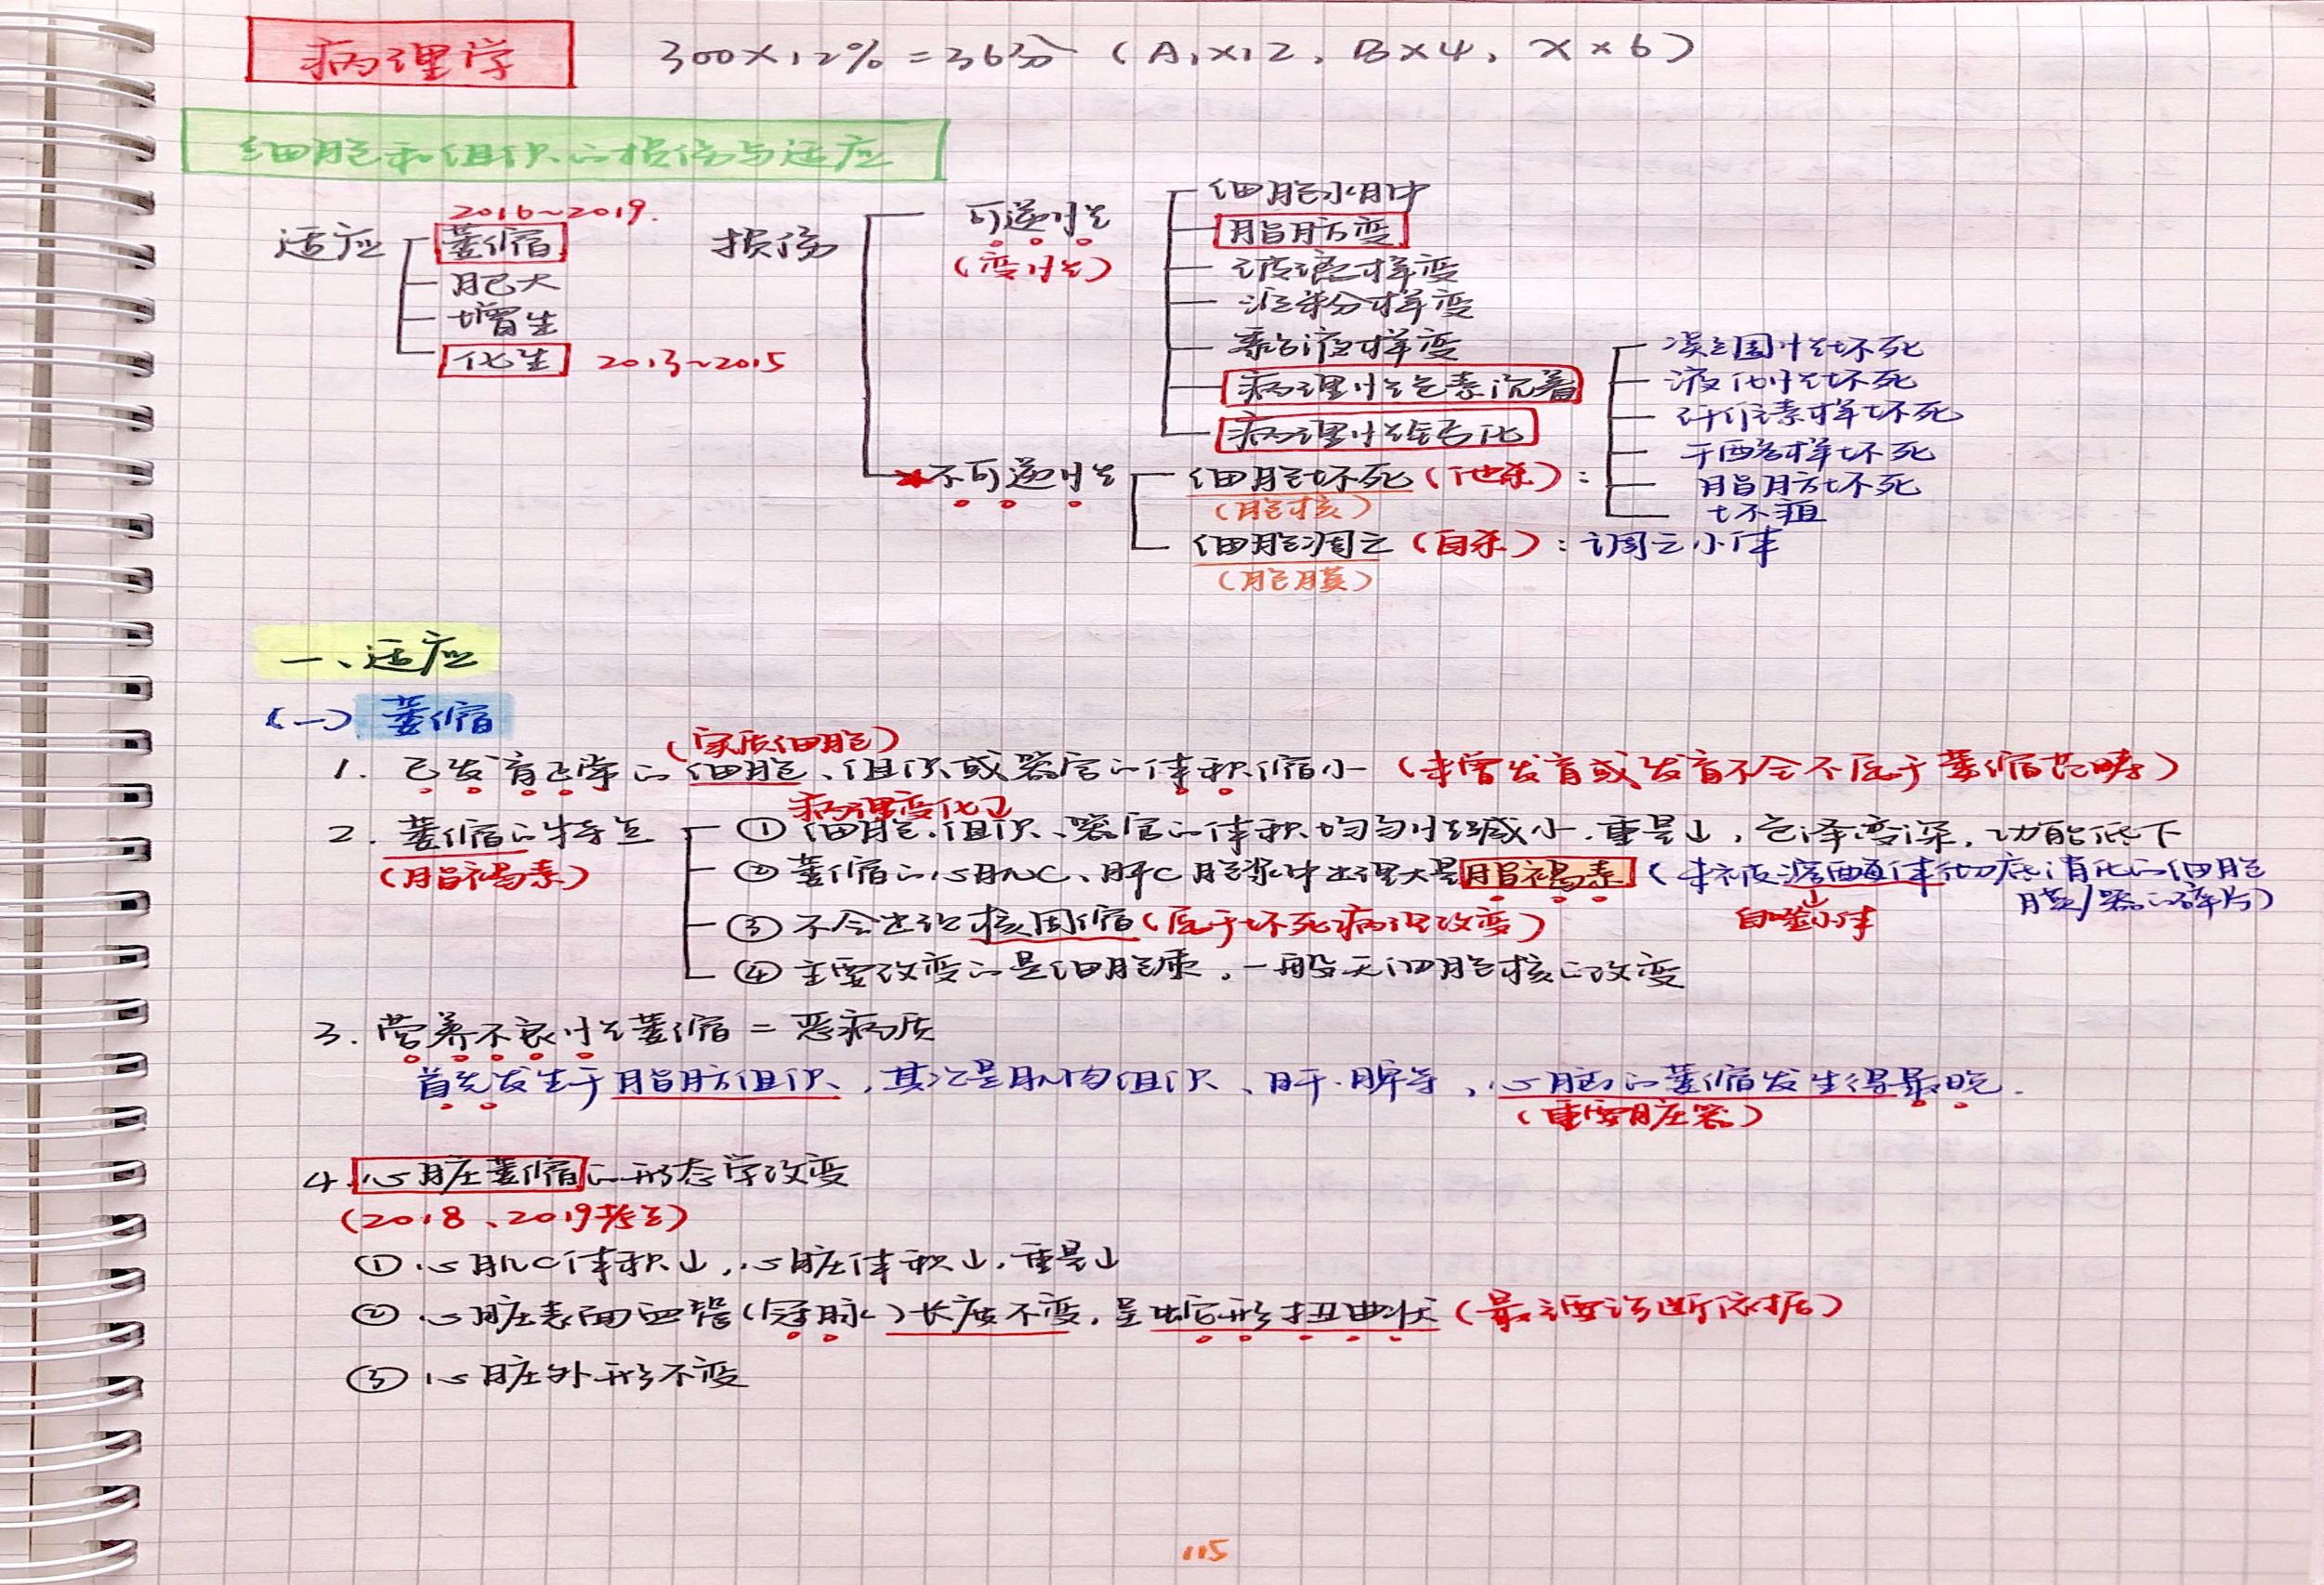 病理学 300×12%=36分 (A₁×12, B×4, X×6)
细胞和组织的损伤与适应
适应
2016~2019.
萎缩
肥大
增生
化生 2013~2015
损伤
可逆性
(变性)
细胞水肿
脂肪变
玻璃样变
淀粉样变
黏液样变
病理性色素沉着
病理性钙化
★不可逆性
细胞坏死(他杀):
(胞核)
凝固性坏死
液化性坏死
纤维素样坏死
干酪样坏死
脂肪坏死
坏疽
细胞凋亡(自杀): 凋亡小体
(胞膜)
一、适应
(一) 萎缩
(实质细胞)
1. 已发育正常的细胞、组织或器官的体积缩小(未曾发育或发育不全不属于萎缩范畴)
病理变化
2. 萎缩的特点 ① 细胞、组织、器官的体积均匀性减小,重量↓,色泽变深,功能低下
(脂褐素)
② 萎缩的心肌C、肝C胞浆中出现大量脂褐素(未被溶酶体彻底消化的细胞
膜/器的碎片)
自噬小体
③ 不会出现核固缩(属于坏死病理改变)
④ 主要改变的是细胞浆,一般无细胞核的改变
3. 营养不良性萎缩 = 恶病质
首先发生于脂肪组织,其次是肌肉组织、肝、脾等,心脑的萎缩发生得最晚.
(重要脏器)
4. 心脏萎缩的形态学改变
(2018、2019考点)
① 心肌C体积↓,心脏体积↓,重量↓
② 心脏表面血管(冠脉)长度不变,呈蛇形扭曲状(最主要诊断依据)
③ 心脏外形不变
115